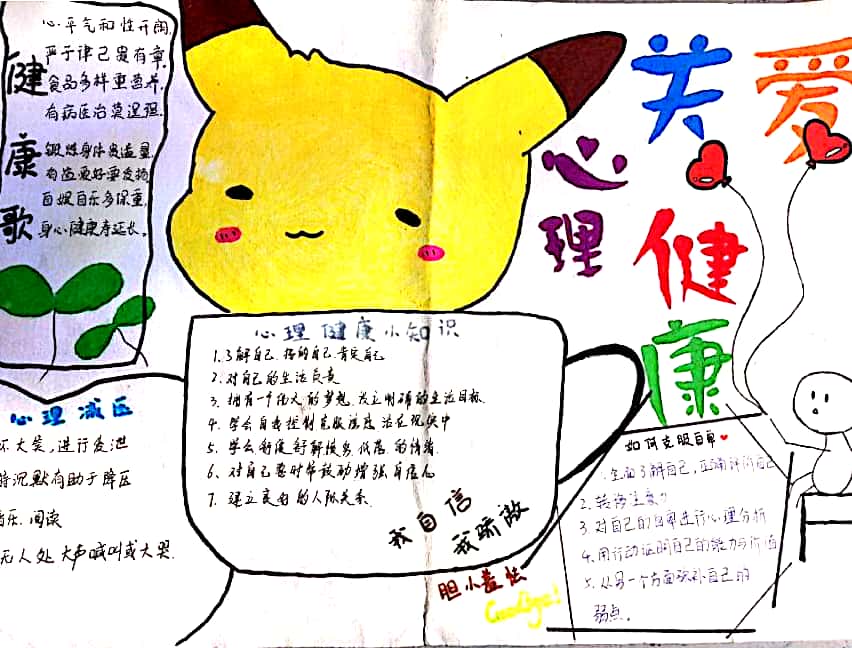 关爱
心理
健康
健康歌
心平气和性开阔,
严于律己贵有章,
食品多样重营养,
有病医治莫逞强.
锻炼身体贵适量,
有益爱好要发扬
自娱自乐多保重,
身心健康寿延长。
心理健康小知识
1.了解自己.接纳自己.肯定自己
2.对自己的生活负责
3.拥有一个伟大的梦想.设立明确的生活目标.
4.学会自我控制克服 活在现实中
5.学会舒缓舒解 低落.的情绪.
6.对自己 增强自信心
7.建立良好的人际关系.
我自信
我骄傲
胆小羞怯
Goodbye!
心理减压
怀大笑,进行发泄
沉默有助于降压
音乐.阅读
无人处大声喊叫或大哭.
如何克服自卑
1.全面了解自己,正确评价自己
2.转移注意力
3.对自己的自卑进行心理分析
4.用行动证明自己的能力与价值
5.从另一个方面弥补自己的
弱点。